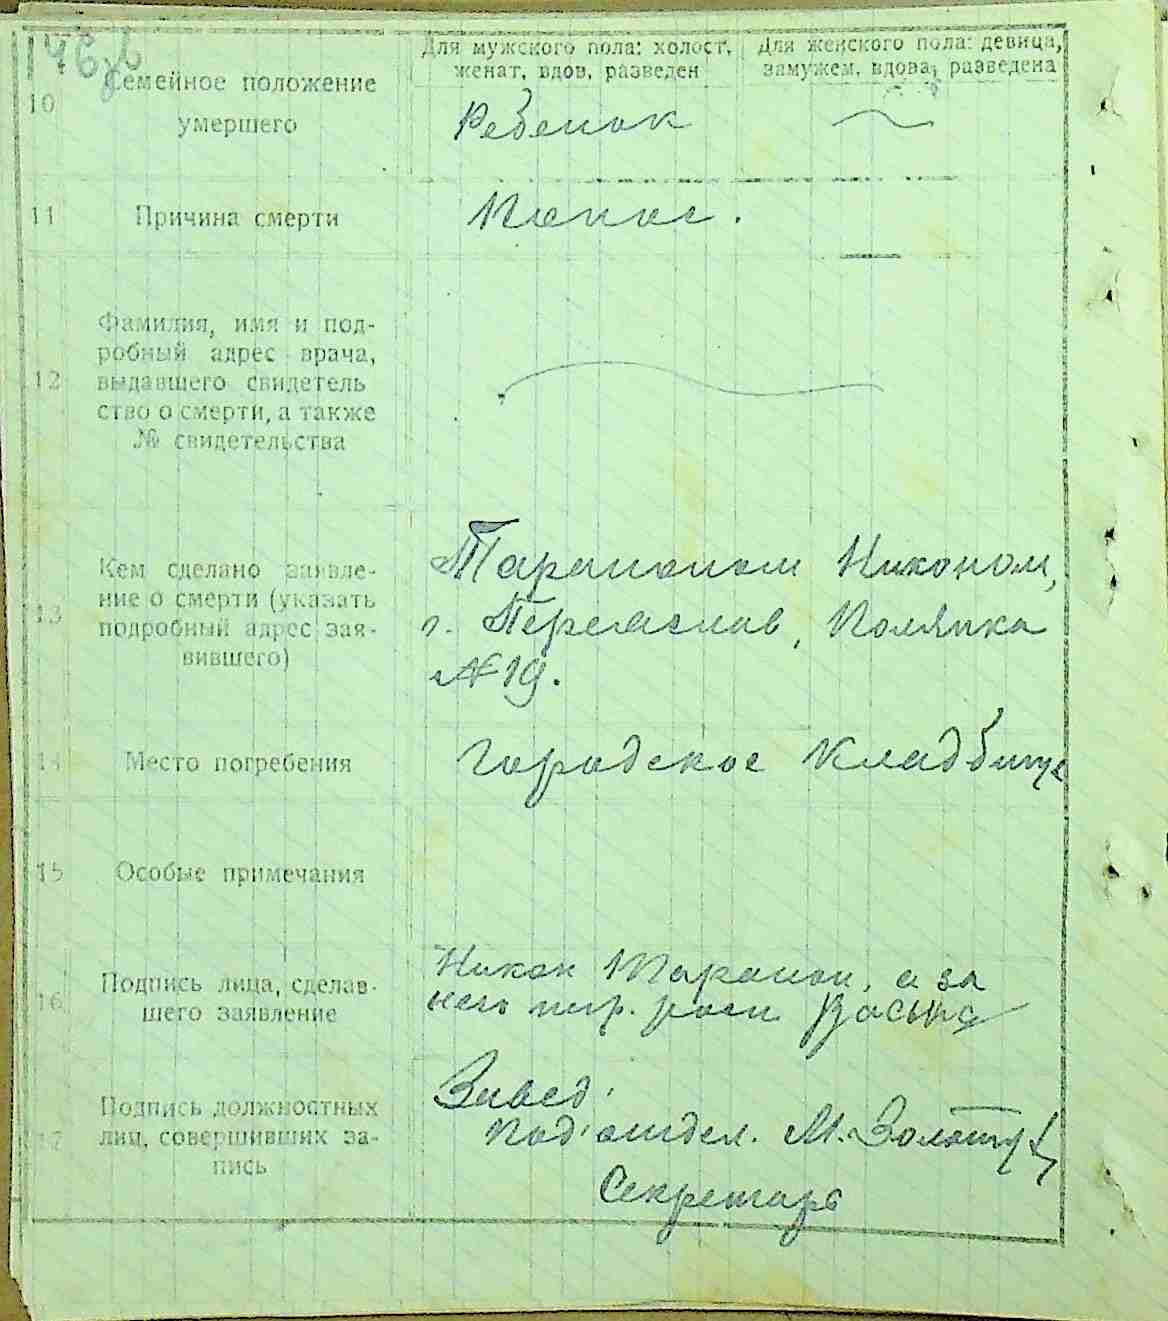 Для мужского пола: холост, женат, вдов, разведен
Для женского пола: девица, замужем, вдова, разведена
10
Семейное положение
умершего
Ребенок
11
Причина смерти
Понос.
12
Фамилия, имя и под-
робный адрес врача,
выдавшего свидетель
ство о смерти, а также
№ свидетельства
13
Кем сделано заявле-
ние о смерти (указать
подробный адрес зая-
вившего)
Тараноном Никоном,
г. Переяслав, Полянка
№ 19.
14
Место погребения
Городское кладбище
15
Особые примечания
16
Подпись лица, сделав-
шего заявление
Никон Таранон, а за
него
17
Подпись должностных
лиц, совершивших за-
пись
Завед.
подотдел. М. Золот
Секретарь